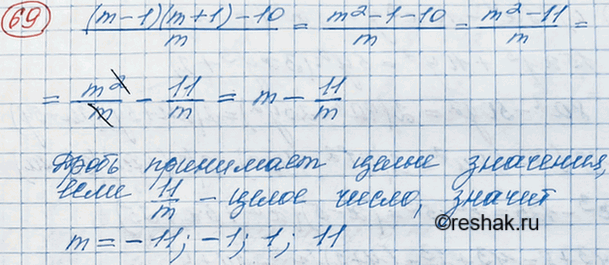 69 ((m-1)(m+1)-10)/m = (m²-1-10)/m = (m²-11)/m =
= m²/m - 11/m = m - 11/m
Дробь принимает целые значения,
если 11/m - целое число, значит
m = -11; -1; 1; 11
©reshak.ru